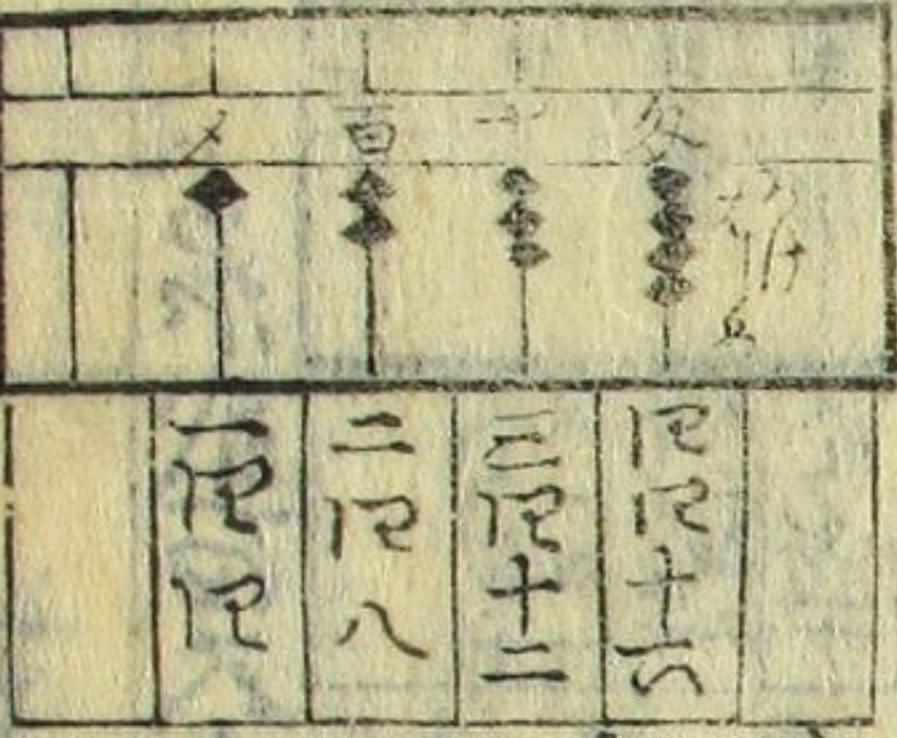 匁
十
百
〆
四四十六
三四十二
二四八
一四四